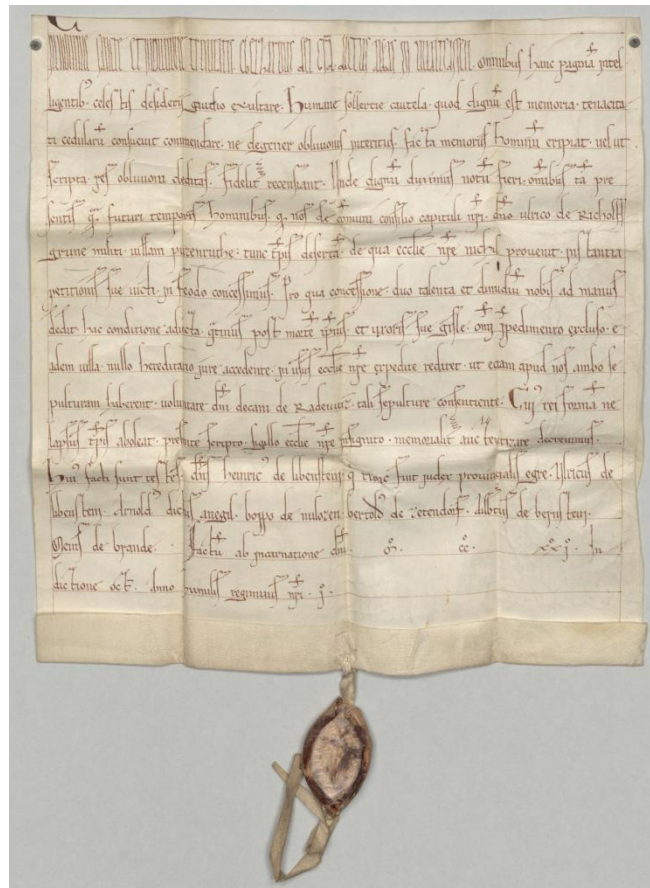 omnibus hanc paginā intel
ligentib; celestis desiderii gaudio exultare. Humane sollertie cautela. quod dignū est memoria. tenacita
ti cedularū consuevit commendare. ne degener oblivionis interitus. facta memoriis hominū eripiat. vel ut
scripta. res oblivioni deditas. fidelit recenseant. Unde dignū duximus notū fieri. omībus tā pre
sentis q̄ futuri temporis hominibus. q nos de comuni consilio capituli nri. dno ulrico de
grune militi villam tunc tpis deserta. de qua ecclie nre nichil provenit. instantia
petitionis sue victi. in feodo concessimus. Pro qua concessione. duo talenta et dimidiū nobis ad manus
dedit. hac conditione adiecta. post morte ipsius. et uxoris sue gisle. omi ipedimento excluso. e
adem villa. nullo hereditario jure accedente. in usus ecclie nre expedite rediret. ut etiam apud nos ambo se
pulturam haberent. voluntate dni decani de tali sepulture consentiente. rei forma ne
lapsu tpis aboleat. presente scripto. sigillo ecclie nre insignito. memoralit decrevimus.
facti sunt testes. dns heinric de libenstein. q tunc fuit judex provincialis egre. Ulricus de
libenstein. Arnold dictus angil. boppo de bertold de de
de brande. Factū ab incarnatione dni. m̊. c̊c̊. xxj̊. In
dictione oct. Anno regiminis nri. j̊.